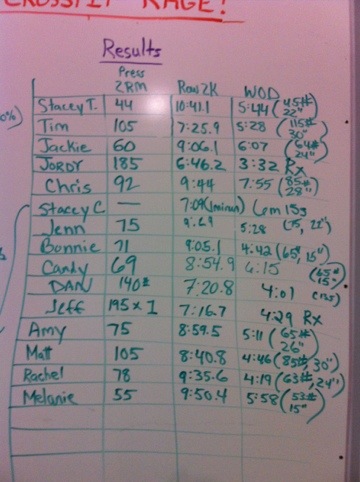 CROSSFIT RAGE!
Results
Press 2RM Row 2K WOD
Stacey T. 44 10:41.1 5:44 (45# 22")
Tim 105 7:25.9 5:28 (115# 30")
Jackie 60 9:06.1 6:07 (64# 24")
JORDY 185 6:46.2 3:32 Rx
Chris 92 9:44 7:55 (85# 28")
Stacey C — 7:09 (1minrun) 6m 15s
Jenn 75 5:28
Bonnie 71 9:05.1 4:42 (65#, 15")
Candy 69 8:54.9 6:15 (65# 15")
DAN 140# 7:20.8 4:01 (135)
Jeff 195 x 1 7:16.7 4:29 Rx
Amy 75 8:59.5 5:11 (65# 26")
Matt 105 8:40.8 4:46 (85#, 30")
Rachel 78 9:35.6 4:19 (63#, 24")
Melanie 55 9:50.4 5:58 (53# 15")